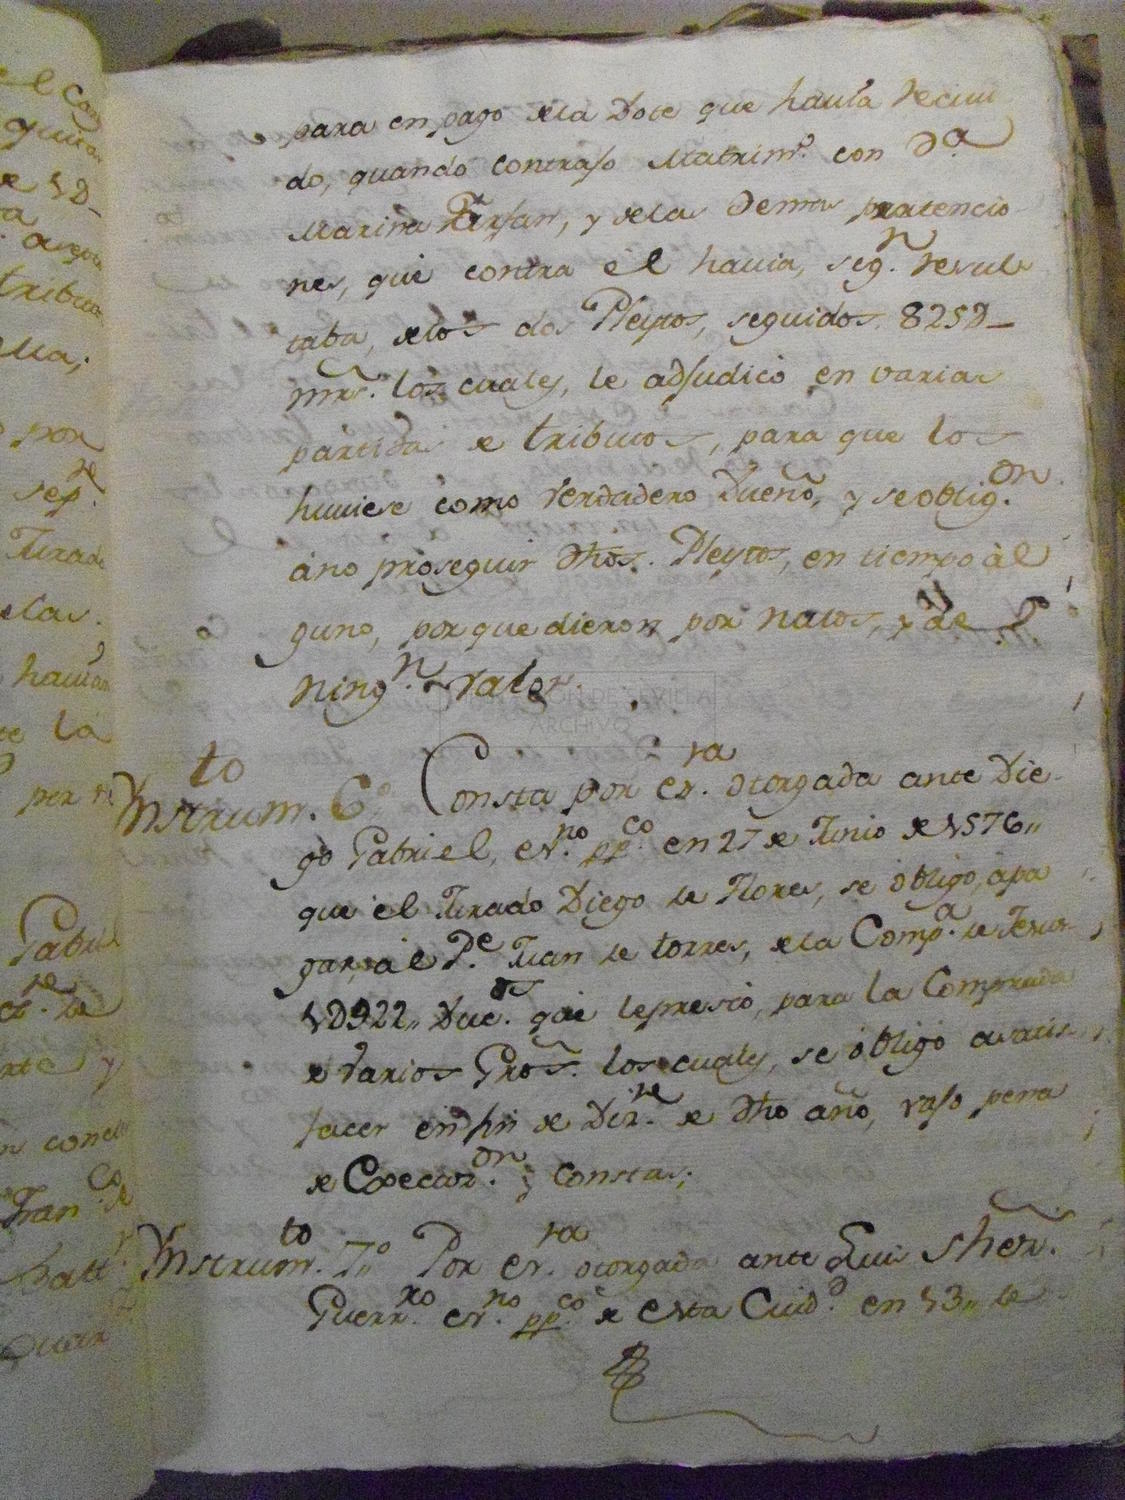 para en pago de la Dote que hauia reciui
do, quando contrajo Matrim.º con D.ª
Marina Farfan, y de las demas pretencio
nes, que contra el hauia, seg.n resul
taba, de los dos Pleytos, seguidos 825D_
mrs. los cuales, le adjudicó en varias
partidas de tributos, para que los
huuiese como verdadero Dueño, y se oblig.on
áno proseguir dhos. Pleytos, en tiempo àl
guno, porque dieron por natos, y de
ning.n valor.
FUNDACIÓN DE SEVILLA
ARCHIVO
Instrum.to 6.º Consta por es.ra otorgada ante Die
go Gabriel, es.no pp.co en 27 de Junio de 1576,,
que el Jurado Diego de Flores, se óbligó, àpa
gar, àl P.e Juan de torres, de la Comp.a de Jesus
1D922,, Duc.os que le prestó, para la Comprada
de varios Gros. los cuales, se óbligó asatis
facer en fin de Diz.re de dho año, vajo pena
de Execuz.on y Costas;
Instrum.to 7.,º Por es.ra otorgada ante Luis
Guerr.ro es.no pp.co de esta Ciud.d en 13,, de
el Cav
por
sep.re
Jurado
elas.
hauian
la
Gabriel
y
Fran.co de